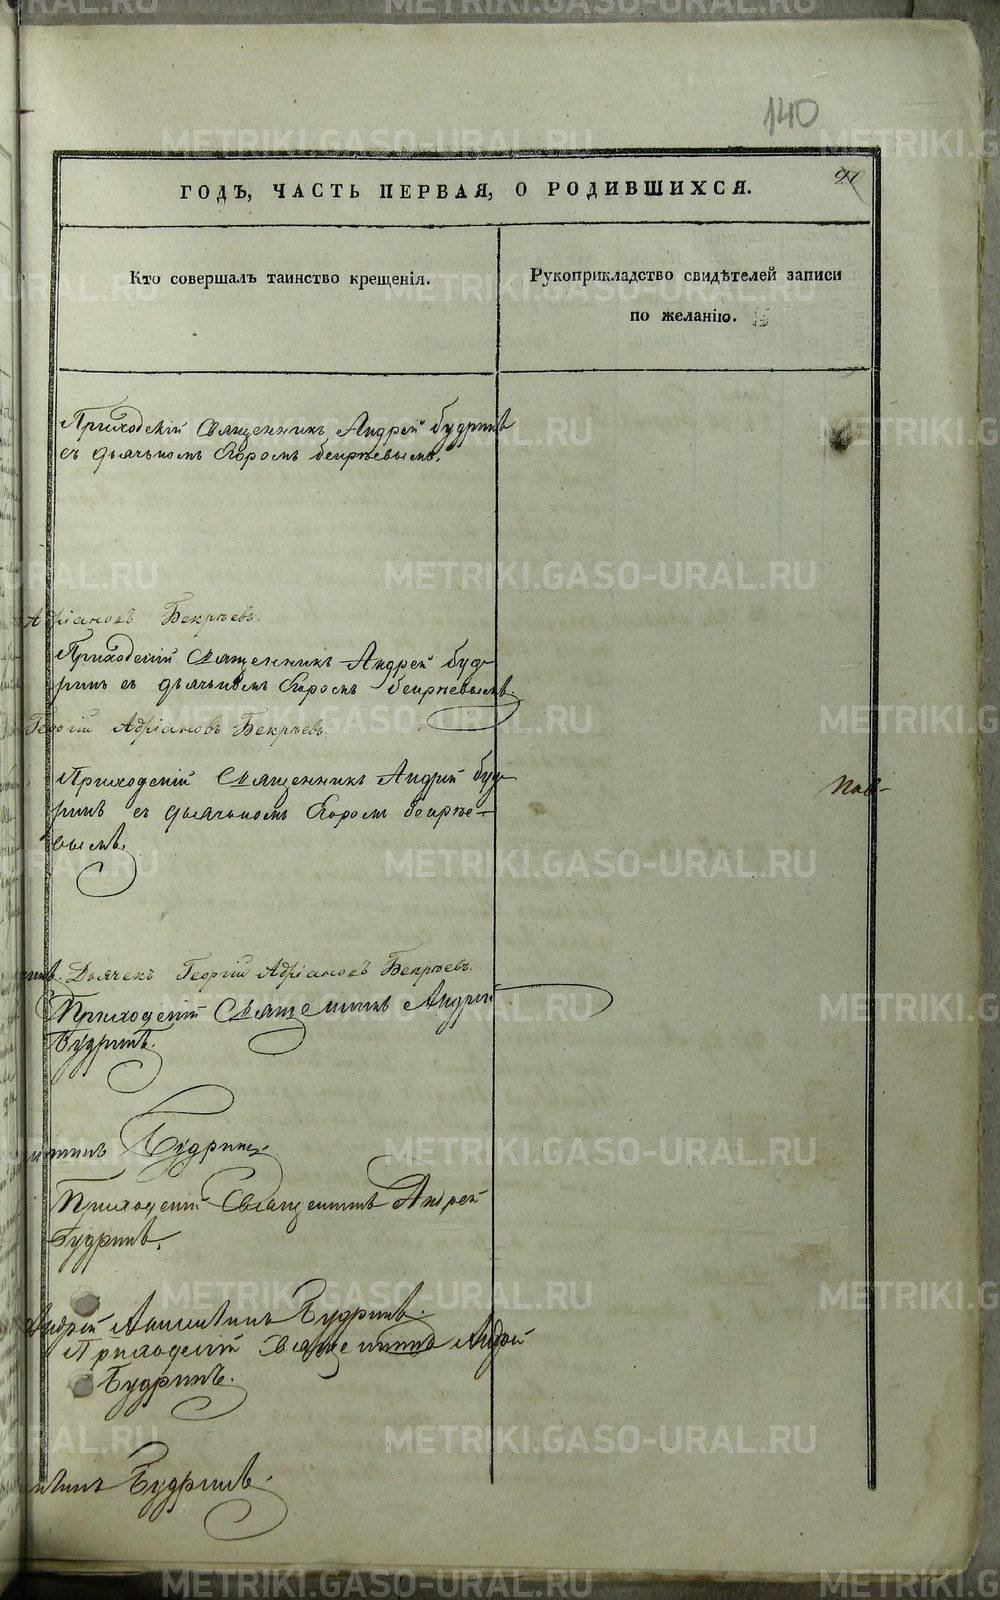 140
ГОДЪ, ЧАСТЬ ПЕРВАЯ, О РОДИВШИХСЯ.
Кто совершалъ таинство крещенія.
Рукоприкладство свидѣтелей записи
по желанію.
Приходскій Священникъ Андрей Будринъ
съ дьячкомъ Егоромъ Бекрѣевымъ.
Адріановъ Бекрѣевъ.
Приходскій Священникъ Андрей Буд-
ринъ съ дьячкомъ Егоромъ Бекрѣевымъ.
Георгій Адріановъ Бекрѣевъ.
Приходскій Священникъ Андрей Буд-
ринъ съ дьячкомъ Егоромъ Бекрѣ-
вымъ.
Дьячекъ Георгій Адріановъ Бекрѣевъ.
Приходскій Священникъ Андрей
Будринъ.
Будринъ
Приходскій Священникъ Андрей
Будринъ.
Андрей Будринъ.
Приходскій Священникъ Андрей
Будринъ.
Будринъ.
METRIKI.GASO-URAL.RU